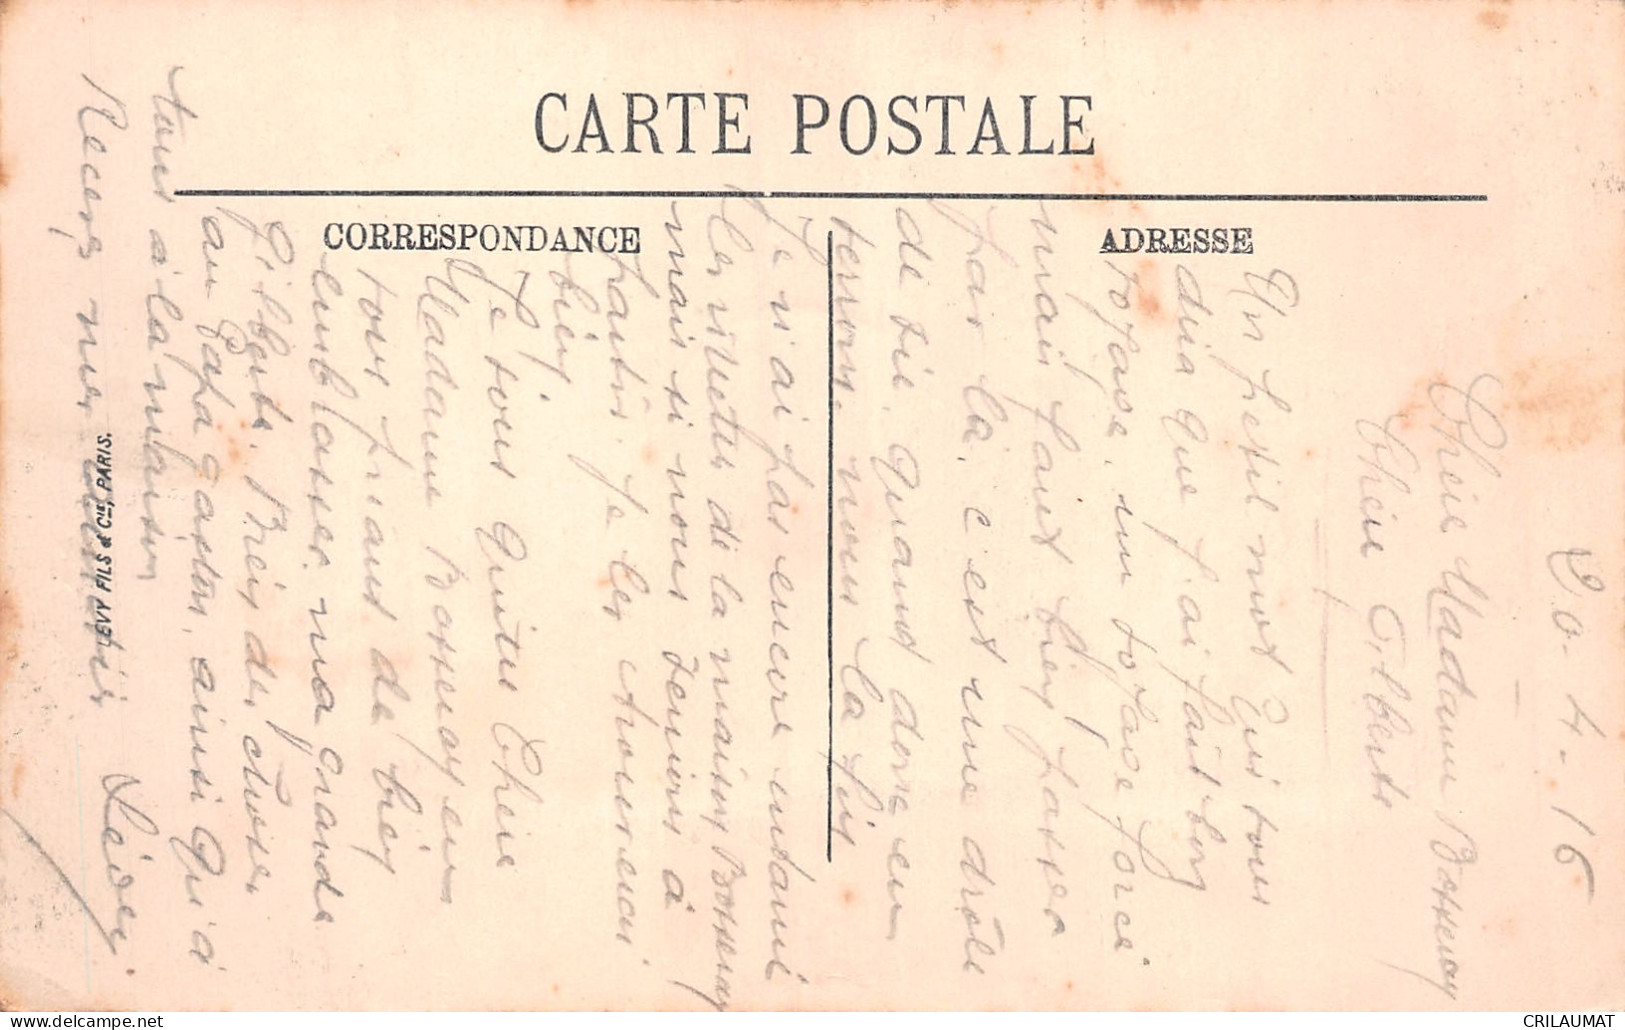 CARTE POSTALE
CORRESPONDANCE
ADRESSE
20-4-16
Cheie Madame Bosseray
Cheie Gilberte
Un petit mot qui vous
dira que j'ai fait bon
voyase. un voyase forcé
mais faut bien passer
par là, c'est une drôle
de vie. Quand donc en
verrons nous la fin
Je n'ai pas encore entamé
les rivetes de la maison Bosseray
mais si nous venions à
partir. Je les
bien.
Je vous quitte Cheie
Madame Bosseray en
vous priant de bien
embrasser ma grande
Gilberte. Bien des choses
au Papa Gaston, ainsi qu'à
tous à la maison
Recevez mes
LEVY FILS & Cie, PARIS.